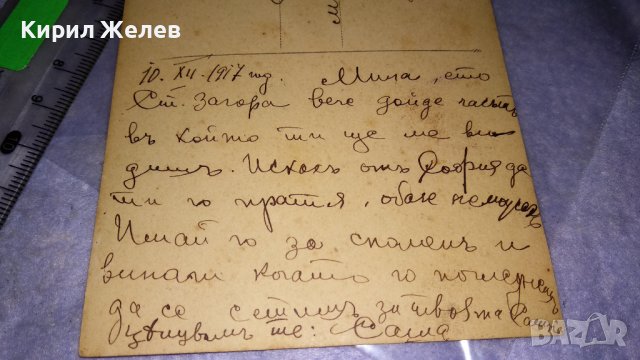 Кирил Желев
10. XII. 1917 год. Мила, ето
Ст. Загора вече дойде частьтъ
въ който ти ще ме ви
дишъ. Искахъ отъ София да
ти го пратя, обаче неможехъ
Имай го за споменъ и
винаги когато го погледнешъ
да се сетишъ за твоята Саша
цѣлувамъ те: Саша
BAZAR